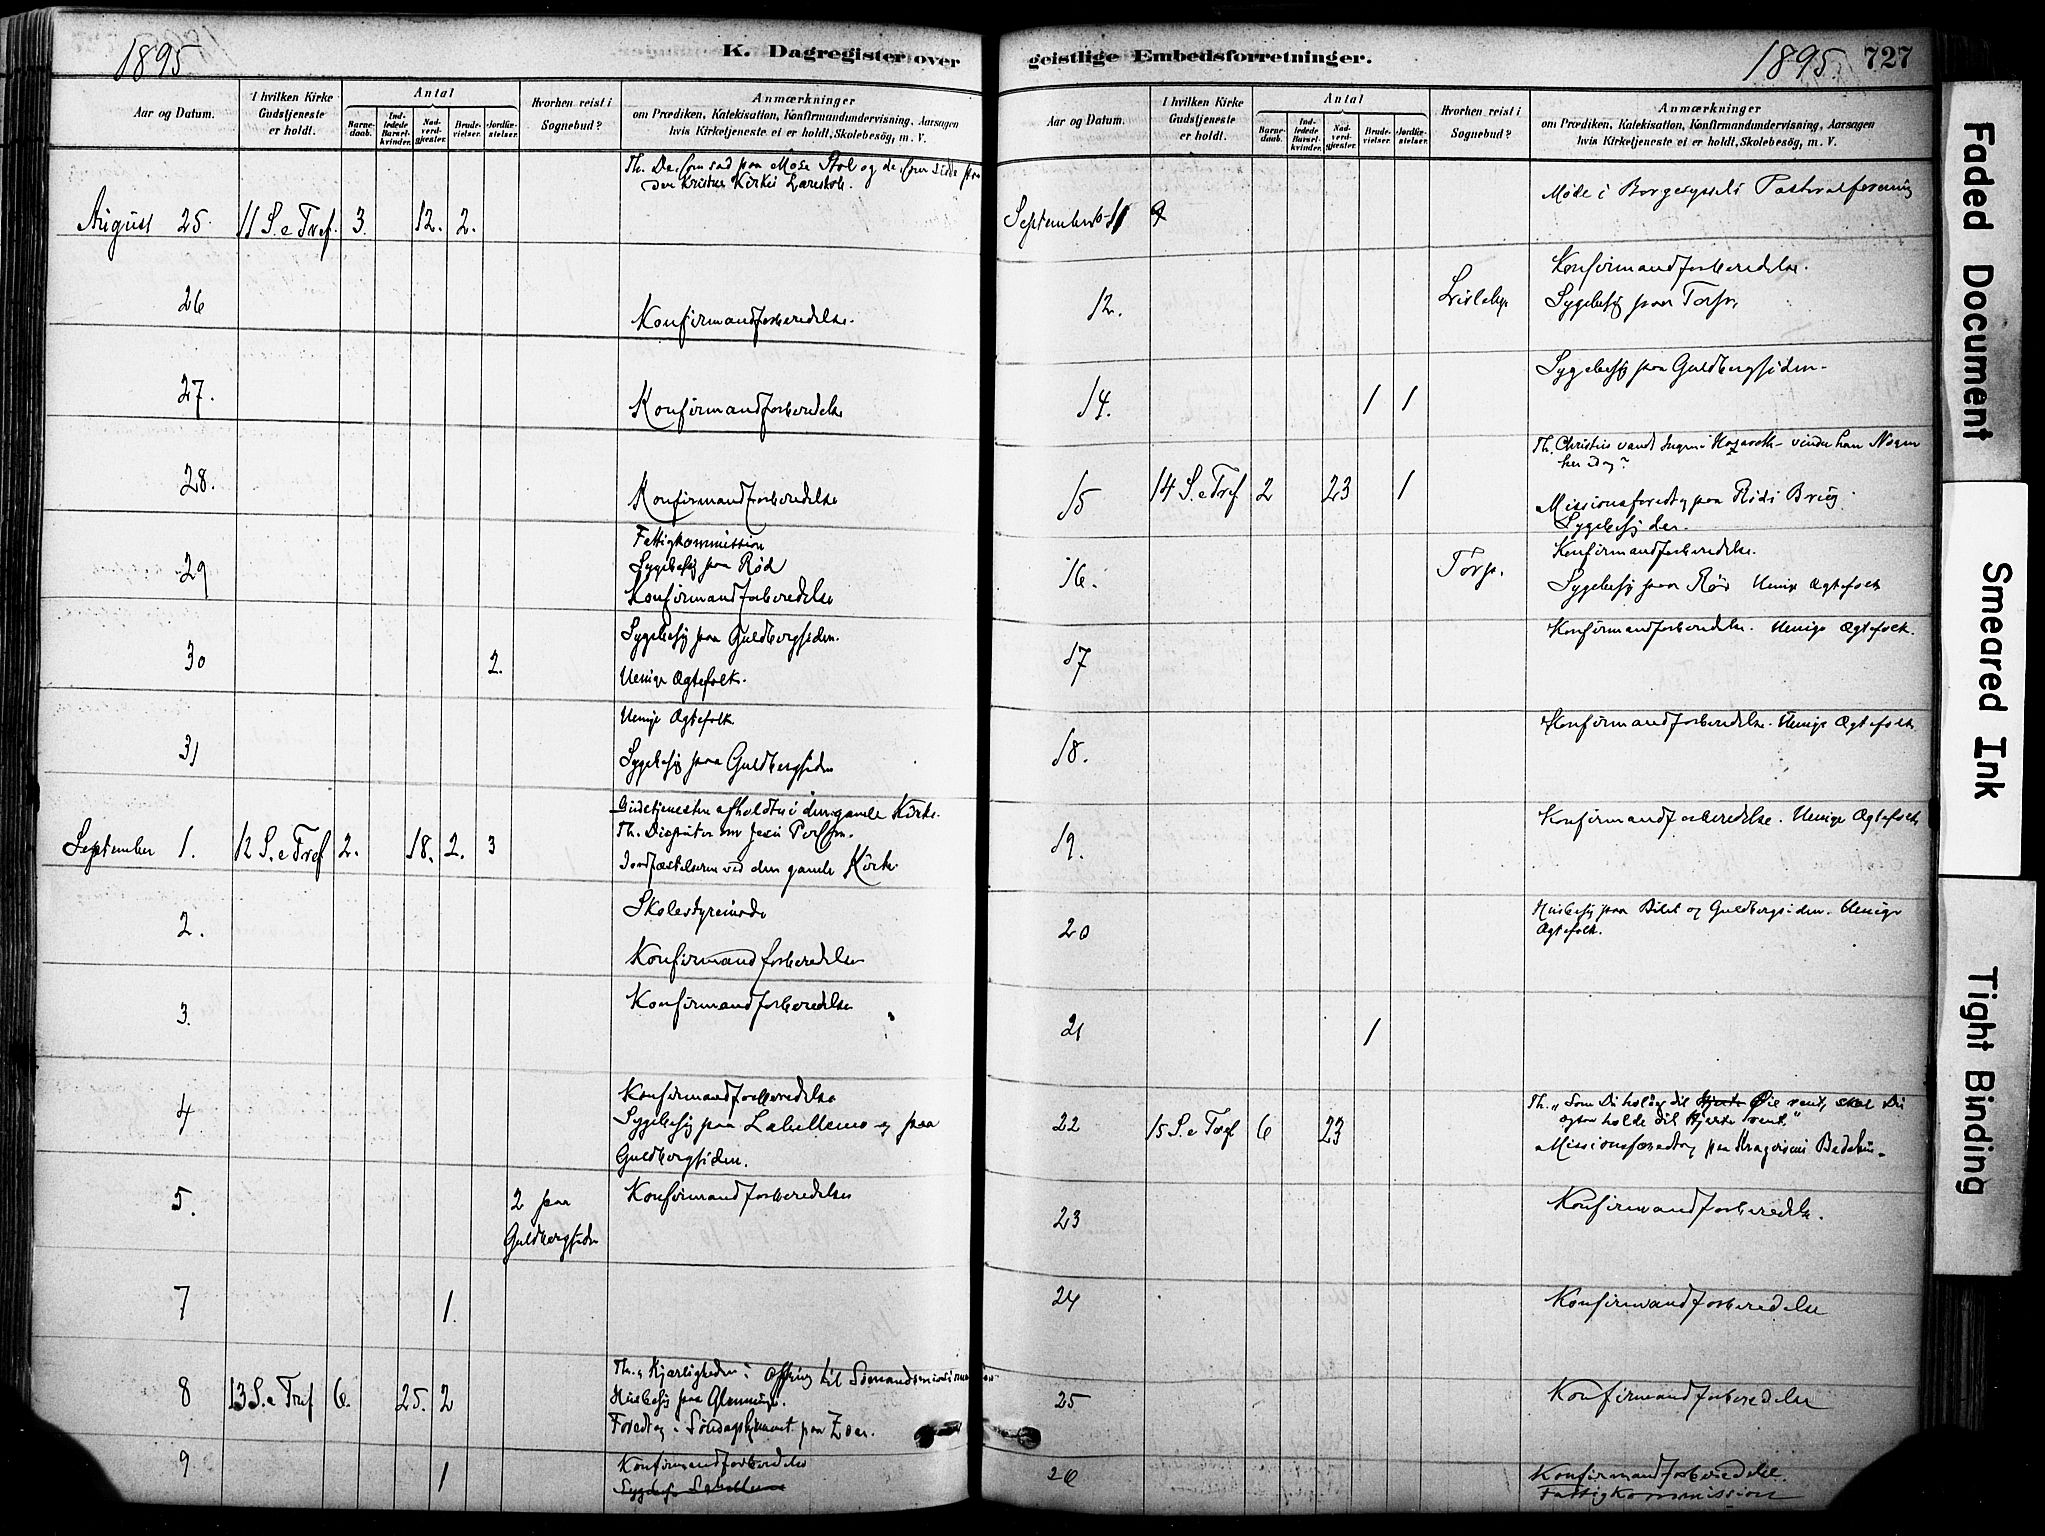 1895
K. Dagregister over
Aar og Datum.
I hvilken Kirke Gudstjeneste er holdt.
Antal
Barnedaab.
Indledede Barselkvinder.
Nadverdgjester.
Brudevielser.
Jordfæstelser.
Hvorhen reist i Sognebud?
Anmærkninger
om Prædiken, Katekisation, Konfirmandundervisning, Aarsagen
hvis Kirketjeneste ei er holdt, Skolebesög, m. V.
Th. De, som sad paa Mose Stol og de som sidde paa
den Kristne Kirkes Lærestole.
August 25. 11 S. e Tref. 3. 12. 2.
26 Konfirmandforberedelse.
27. Konfirmandforberedelse
28. Konfirmandforberedelse
Fattigkommission
29 Sygebesög paa Röd
Konfirmandforberedelse
Sygebesög paa Guldbergsiden.
30 2.
Uenige Ægtefolk.
Uenige Ægtefolk
31
Sygebesög paa Guldbergsiden
Gudstjenesten afholdtes i den gamle Kirke.
Th. Disputer om Jesu Person.
September 1. 12 S. e Tref 2. 18. 2. 3
Jordfæstelserne ved den gamle Kirke
Skolestyremøde
2.
Konfirmandforberedelse
3. Konfirmandforberedelse
Konfirmandforberedelse
4 Sygebesög paa Labellemo og paa
Guldbergsiden.
5. 2 paa Guldbergsiden Konfirmandforberedelse
7 1.
Th. Kjærligheden. Offring til Sömandsmissionen
8 13 S. e Tref 6. 25. 2 Husbesög paa Glemminge.
Foredrag i Söndagshjemmet paa Zoar.
9 1 Konfirmandforberedelse
geistlige Embedsforretninger.
1895. 727
Aar og Datum.
I hvilken Kirke Gudstjeneste er holdt.
Antal
Barnedaab.
Indledede Barselkvinder.
Nadverdgjester.
Brudevielser.
Jordfæstelser.
Hvorhen reist i Sognebud?
Anmærkninger
om Prædiken, Katekisation, Konfirmandundervisning, Aarsagen
hvis Kirketjeneste ei er holdt, Skolebesög, m. V.
Möde i Borgesyssels Pastoralforening
September 10-11
Konfirmandforberedelse.
12. Lisleby Sygebesög paa Torp
Sygebesög paa Guldbergsiden.
14. 1 1
Th. Christus vandt Ingen i Nazareth – vinder han Nogen
her idag?
15 14 S. e Tref 2 23 1
Missionsforedrag paa Röds Brug.
Sygebesög der.
Konfirmandforberedelse.
16. Torp. Sygebesög paa Röd Uenige Ægtefolk
17 Konfirmandforberedelse. Uenige Ægtefolk.
18. Konfirmandforberedelse. Uenige Ægtefolk
19. Konfirmandforberedelse. Uenige Ægtefolk
20 Husbesög paa Bilet og Guldbergsiden. Uenige
Ægtefolk.
21 1
Th. "Som Du holder dit Hjerte Øie rent, skal Du
ogsaa holde dit Hjerte rent."
22 15 S. e Tref 6 23
Missionsforedrag paa Krageröens Bedehus.
23 Konfirmandforberedelse.
24 Konfirmandforberedelse
25 Konfirmandforberedelse
26 Konfirmandforberedelse.
Fattigkommission
Faded Document
Smeared Ink
Tight Binding